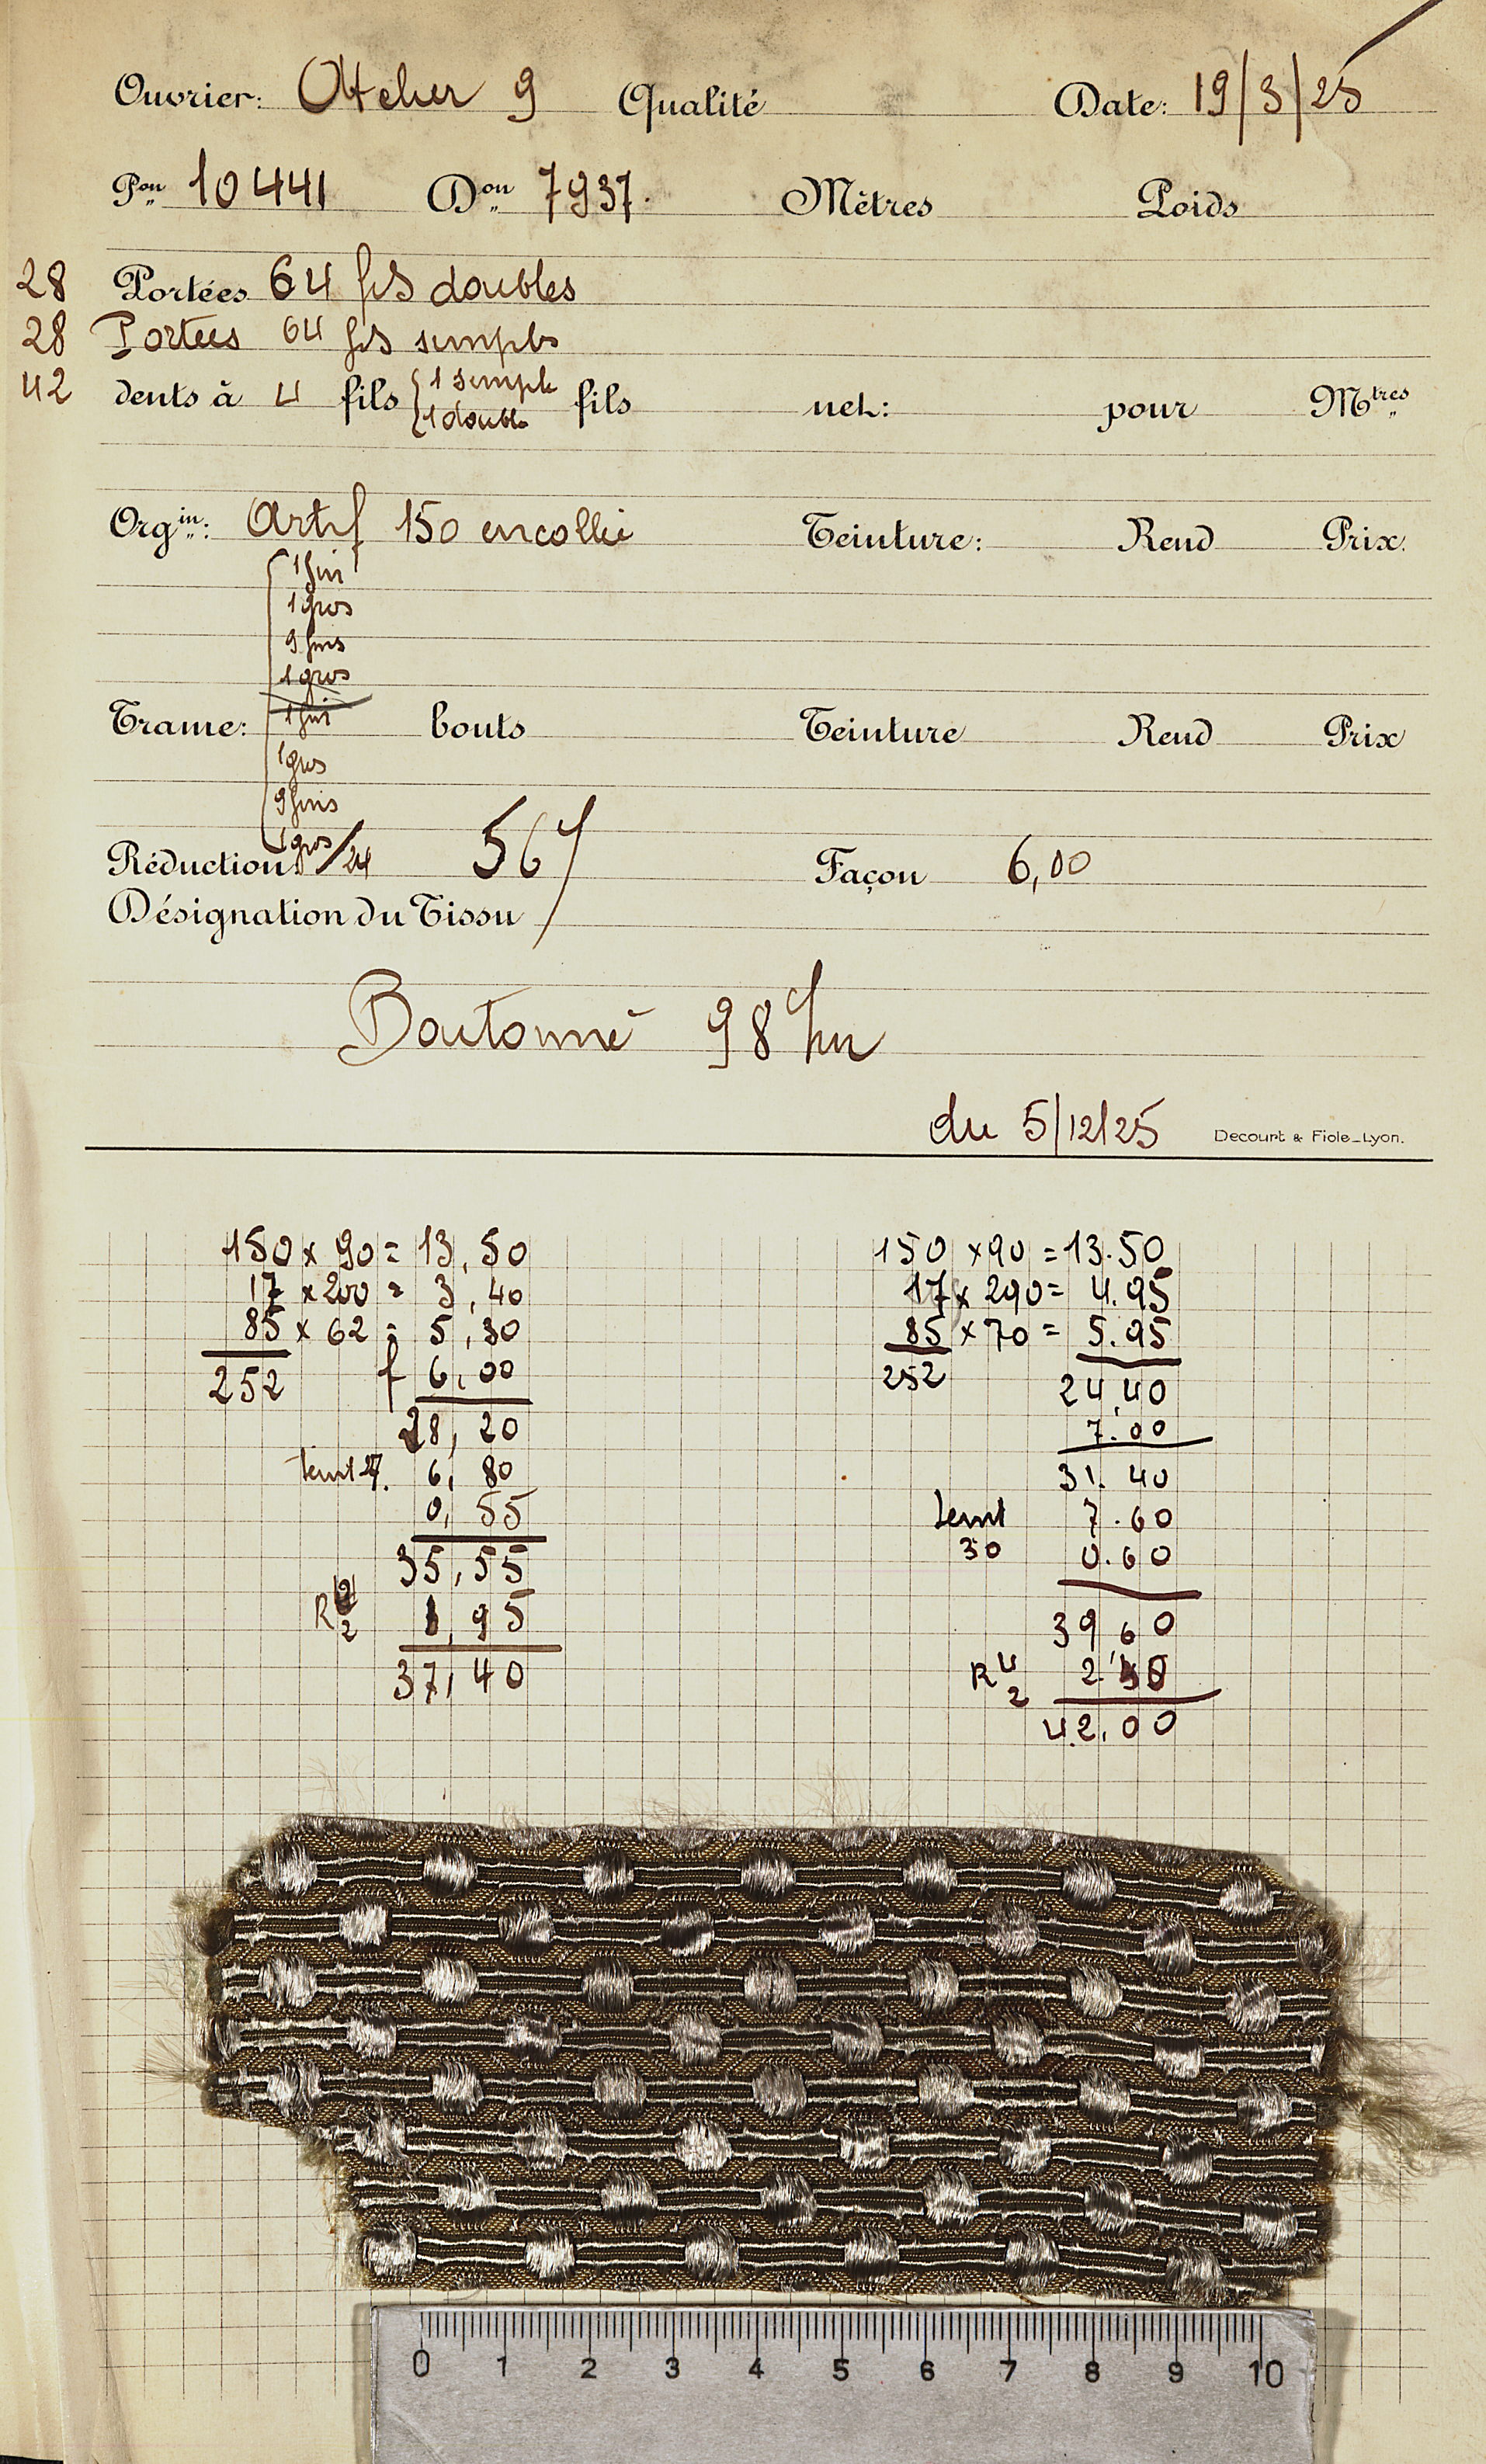 Ouvrier: Atelier 9 Qualité Date: 19/3/25
Pon 10441 Don 7937. Mètres Poids
28 Portées 64 fils doubles
28 Portées 64 fils simples
42 dents à 4 fils { 1 simple 1 double fils net: pour Mtres
Orgin: Artif 150 encollé Teinture: Rend Prix.
1 fin
1 gros
9 fins
1 gros
Trame: 1 fin bouts Teinture Rend Prix
1 gros
9 fins
1 gros
Réduction /24 56 Façon 6,00
Désignation du Tissu
Boutonné 98
du 5/12/25 Decourt & Fiole_Lyon.
150 x 90 = 13,50
17 x 200 = 3,40
85 x 62 = 5,30
252 f 6,00
28,20
teint 27. 6,80
0,55
35,55
R 2 1,95
37,40
150 x 90 = 13.50
17 x 290 = 4.95
85 x 70 = 5.95
252 24,40
7.00
31.40
teint 7.60
30 0.60
39,60
R 4 2 2.40
42,00
0 1 2 3 4 5 6 7 8 9 10